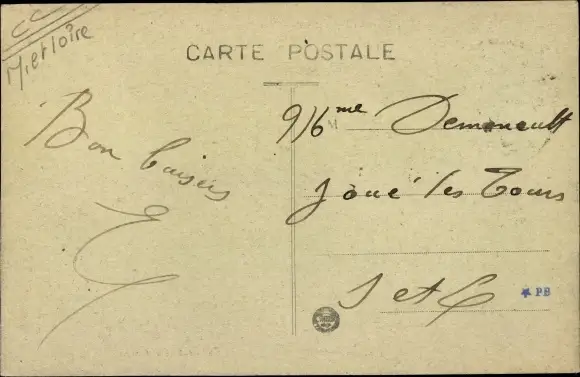 M. et Loire
CARTE POSTALE
Bon baisers
E
Mme Demoneult
Joué les Tours
I et L
PB